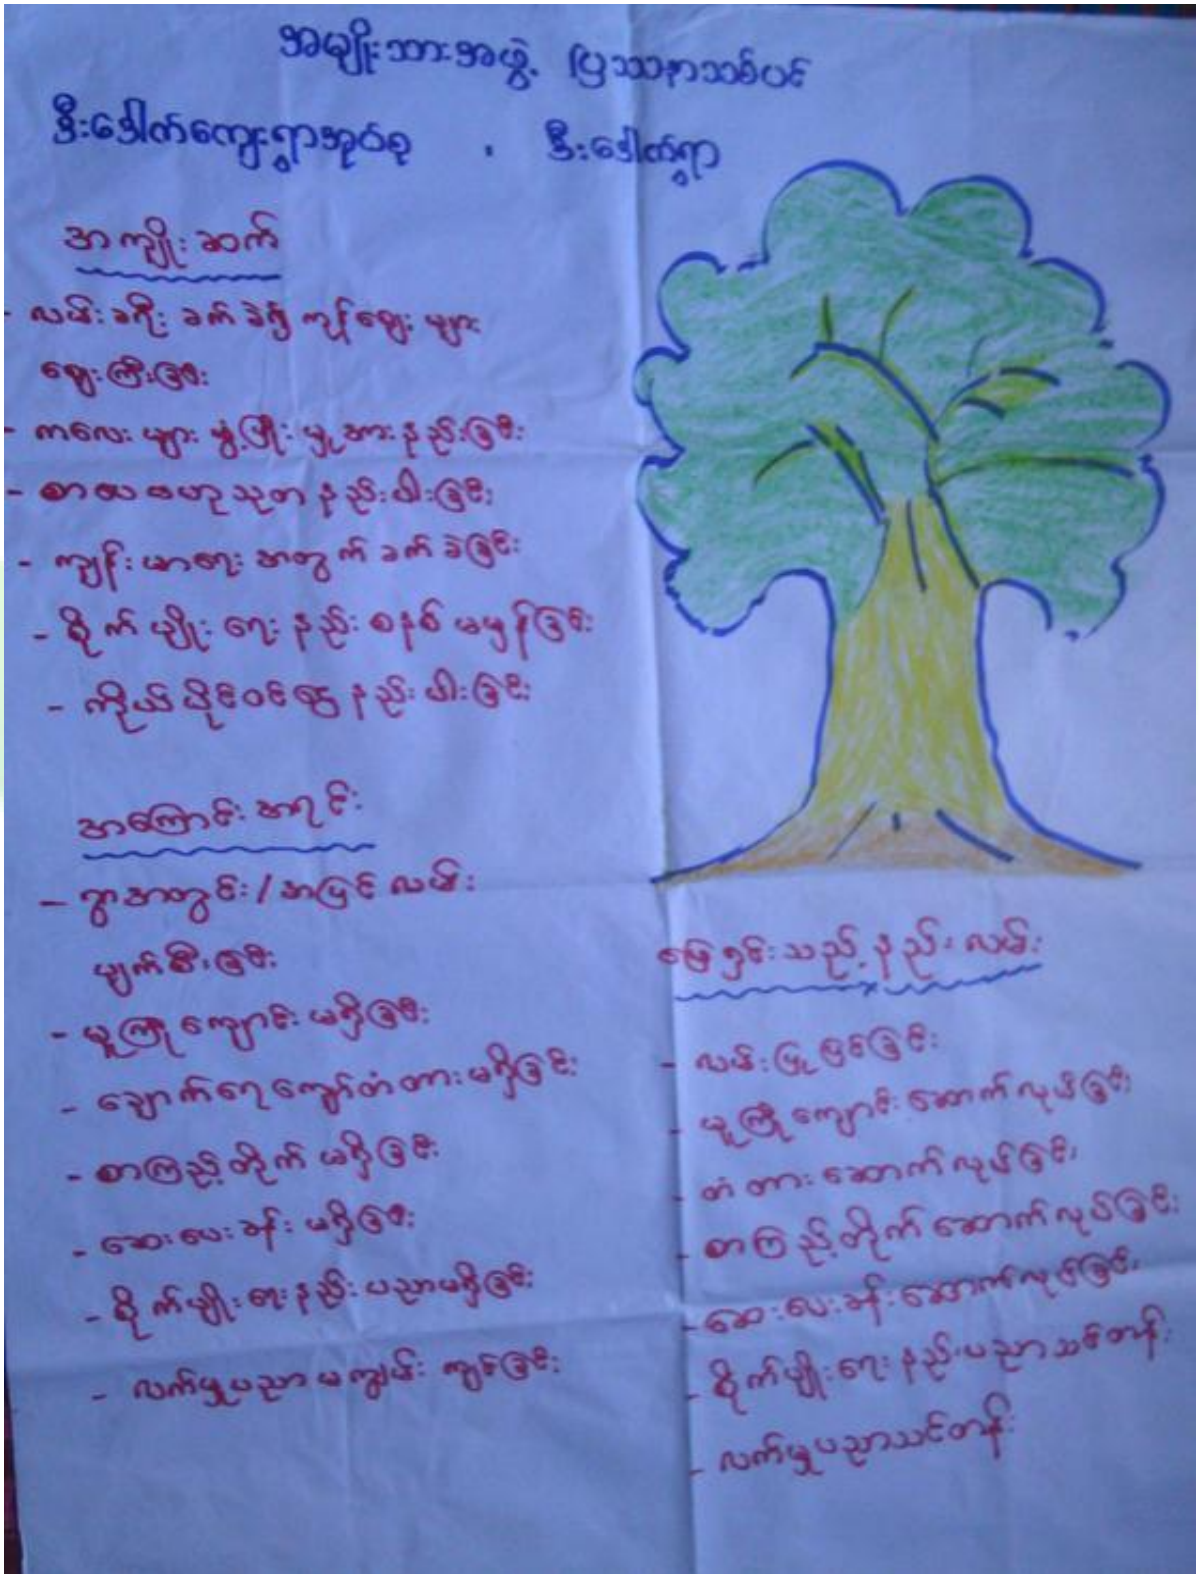 အမျိုးသားအဖွဲ့ ပြဿနာသစ်ပင်
ဒီးဒေါက်ကျေးရွာအုပ်စု ၊ ဒီးဒေါက်ရွာ
အကျိုးဆက်
- လမ်းခရီးခက်ခဲ၍ ကုန်ဈေးများ
ဈေးကြီးခြင်း
- ကလေးများဖွံ့ဖြိုးမှုအားနည်းခြင်း
- စာပေဗဟုသုတနည်းပါးခြင်း
- ကျန်းမာရေးအတွက်ခက်ခဲခြင်း
- စိုက်ပျိုးရေးနည်းစနစ်မမှန်ခြင်း
- ကိုယ်ပိုင်ဝင်ငွေနည်းပါးခြင်း
အကြောင်းအရင်း
- ရွာအတွင်း/အပြင်လမ်း
ပျက်စီးခြင်း
- မူကြိုကျောင်းမရှိခြင်း
- ချောက်ရေကျော်တံတားမရှိခြင်း
- စာကြည့်တိုက်မရှိခြင်း
- ဆေးပေးခန်းမရှိခြင်း
- စိုက်ပျိုးရေးနည်းပညာမရှိခြင်း
- လက်မှုပညာမကျွမ်းကျင်ခြင်း
ဖြေရှင်းသည့်နည်းလမ်း
- လမ်းပြုပြင်ခြင်း
- မူကြိုကျောင်းဆောက်လုပ်ခြင်း
- တံတားဆောက်လုပ်ခြင်း
- စာကြည့်တိုက်ဆောက်လုပ်ခြင်း
- ဆေးပေးခန်းဆောက်လုပ်ခြင်း
- စိုက်ပျိုးရေးနည်းပညာသင်တန်း
- လက်မှုပညာသင်တန်း